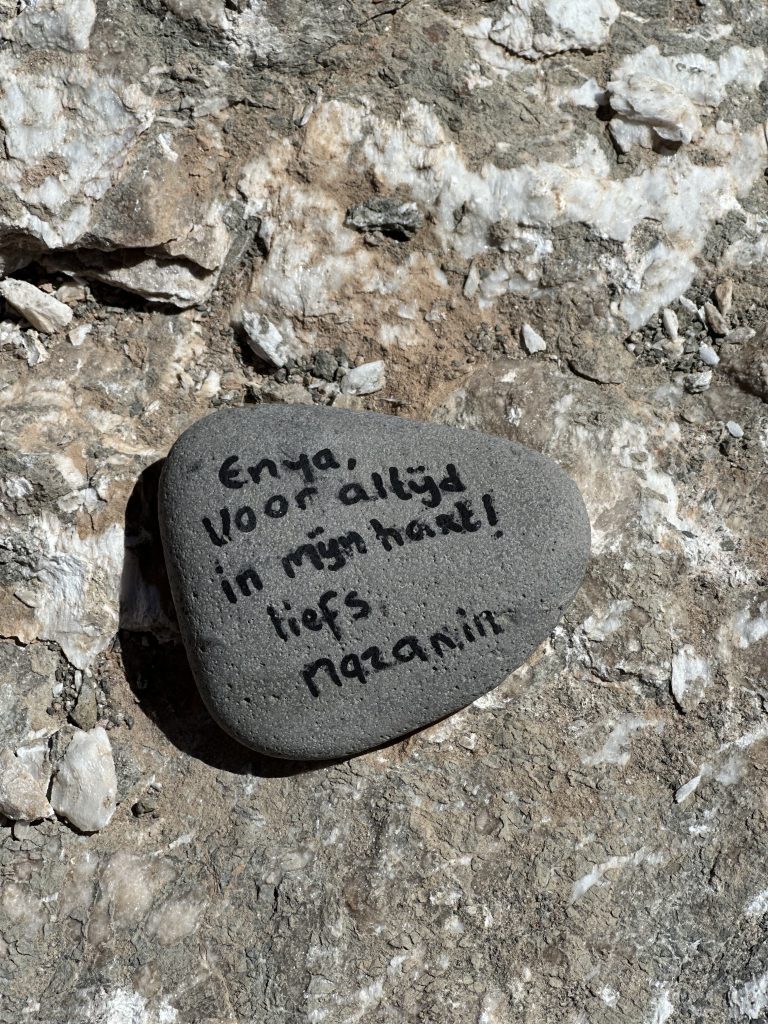 Enya,
Voor altijd
in mijn hart!
liefs
nazanin